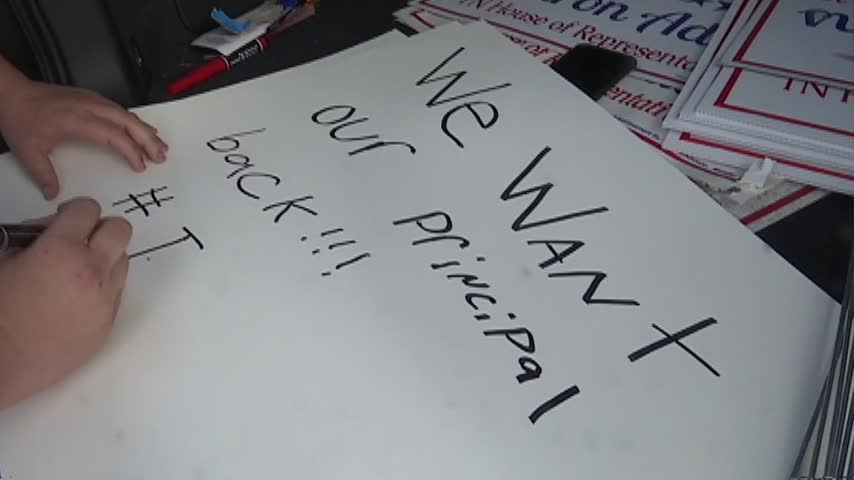 We WANt
our principal
back!!!
# I
on Ad
IN House of Representa
of Represent
entati
INT